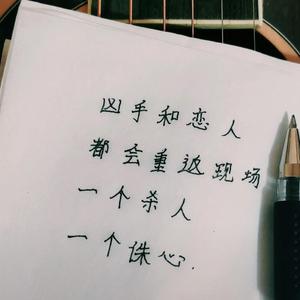 凶手和恋人
都会重返现场
一个杀人
一个诛心.